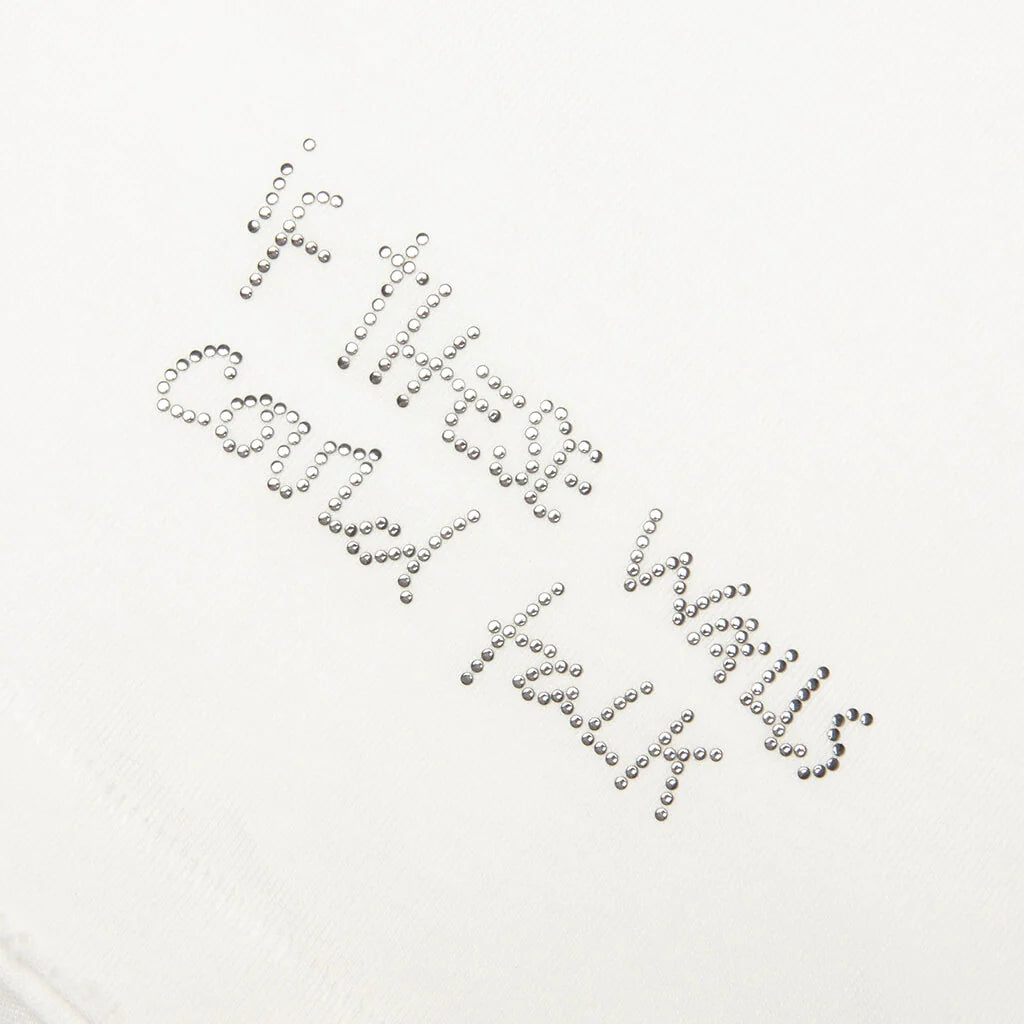 iF THESE WALLS
COULD TALK